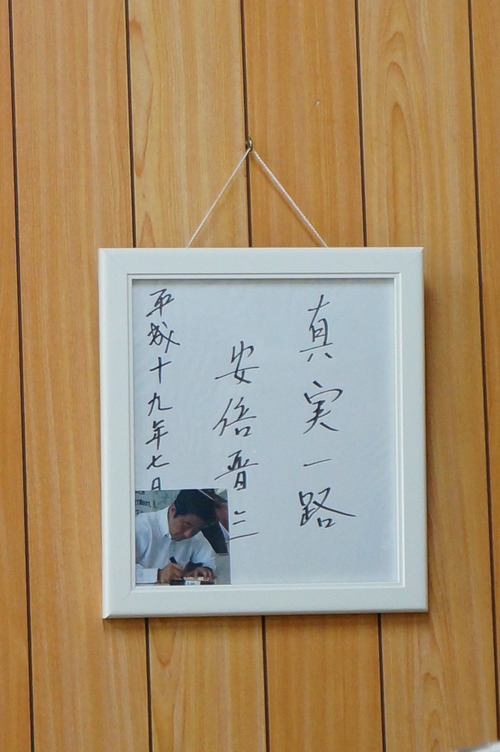 真実一路
安倍晋三
平成十九年七月